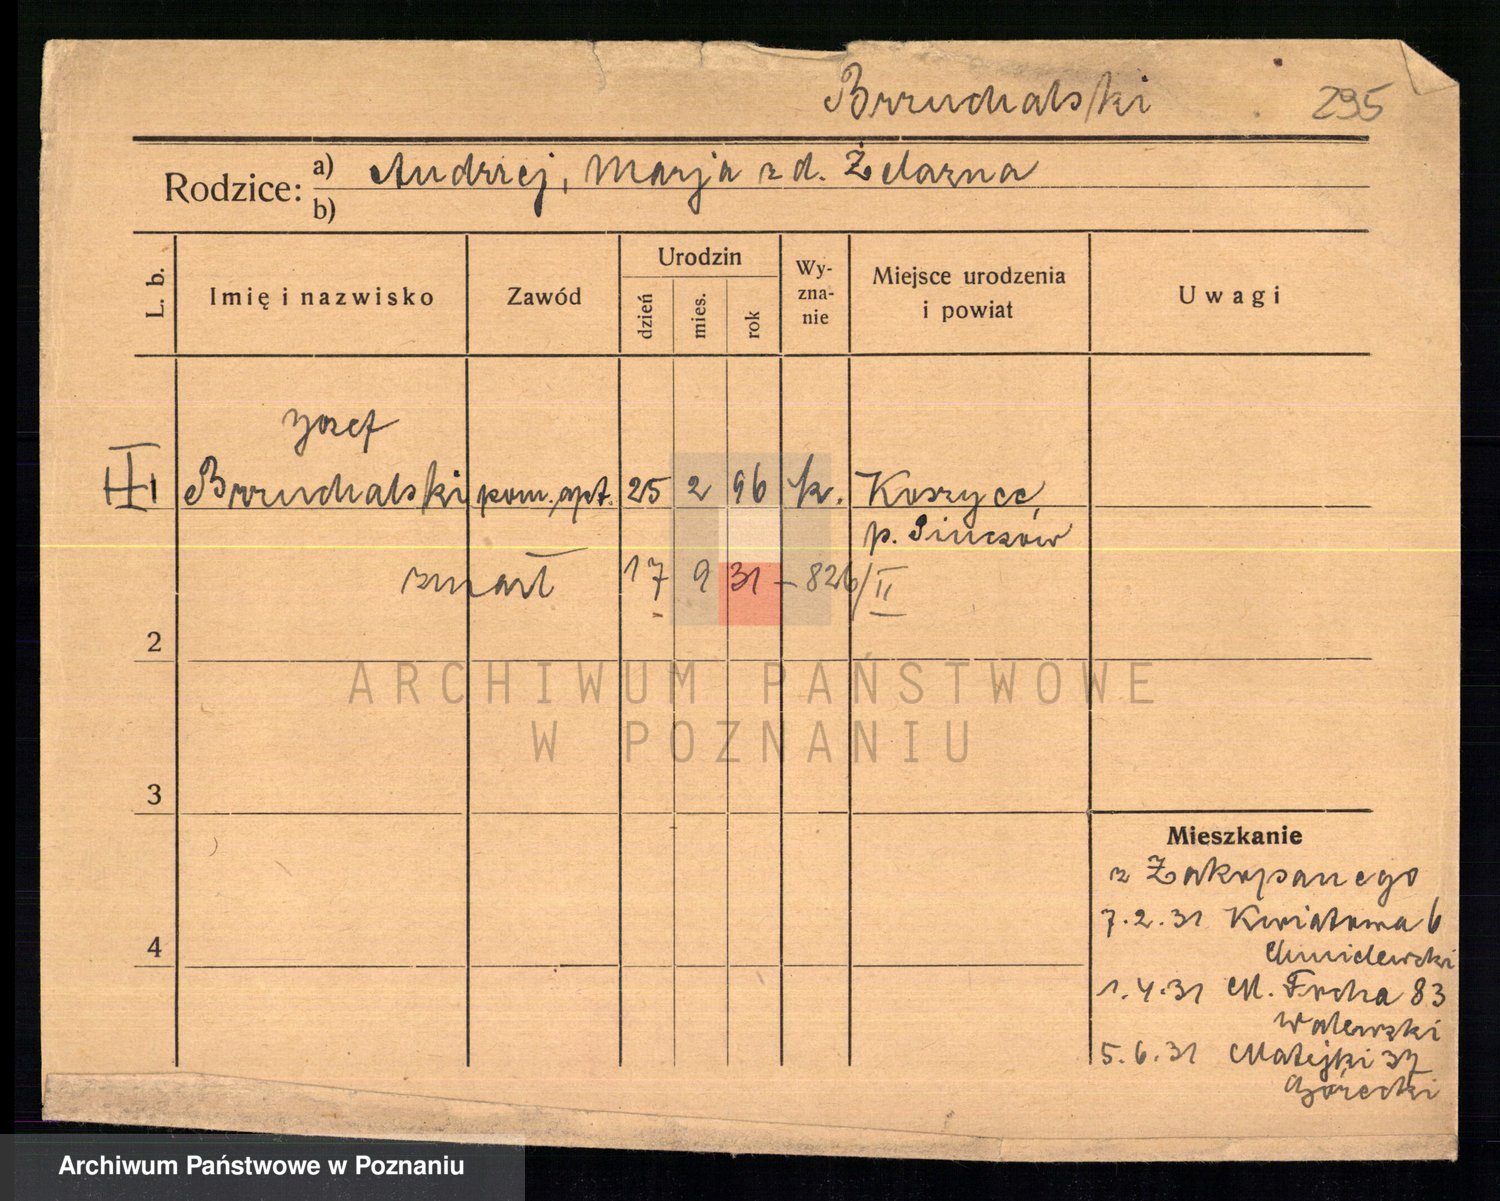 Brzuchalski 295
Rodzice: a) Andrzej, Marja z d. Żelazna
b)
L. b. Imię i nazwisko Zawód Urodzin dzień mies. rok Wy-zna-nie Miejsce urodzenia i powiat Uwagi
Józef
1 Brzuchalski pom. apt. 25 2 96 k. Koszyce,
p. Pinczów
zmarł 17 9 31 – 826/II
2
ARCHIWUM PAŃSTWOWE
W POZNANIU
3
Mieszkanie
z Zakopanego
7.2.31 Kwiatowa 6
Chmielewski
4
1.4.31 M. Focha 83
Walewski
5.6.31 Matejki 37
Górecki
Archiwum Państwowe w Poznaniu